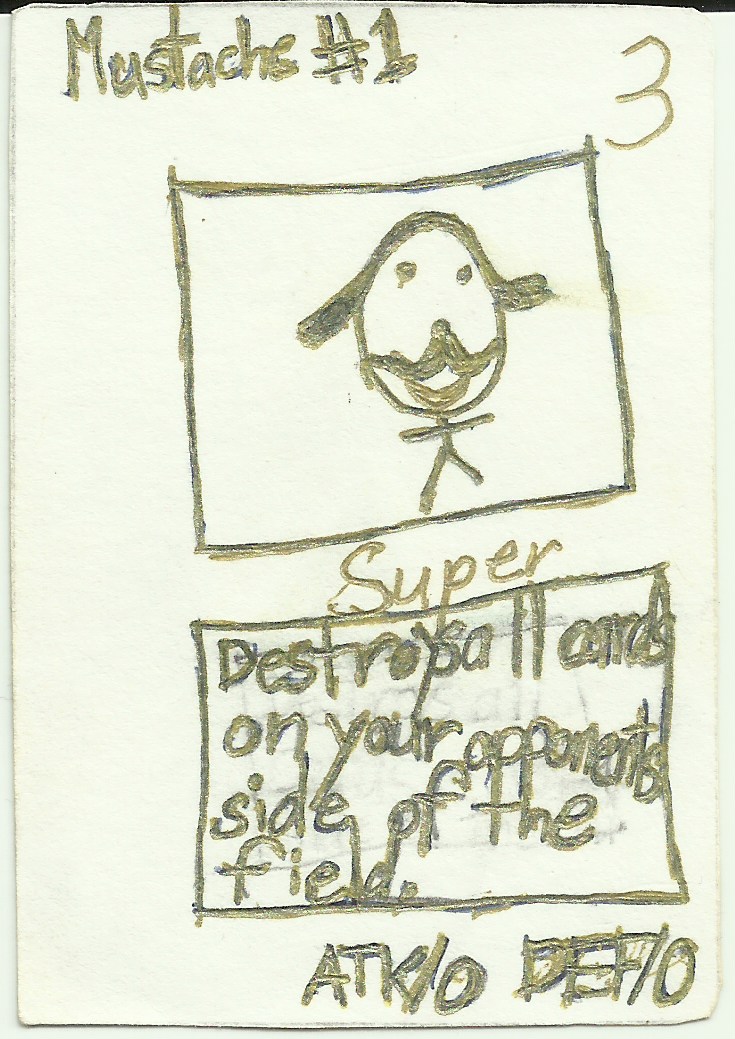 Mustachs #1
3
Super
Destroys all cards
on your opponents
side of the
field.
ATK/0 DEF/0